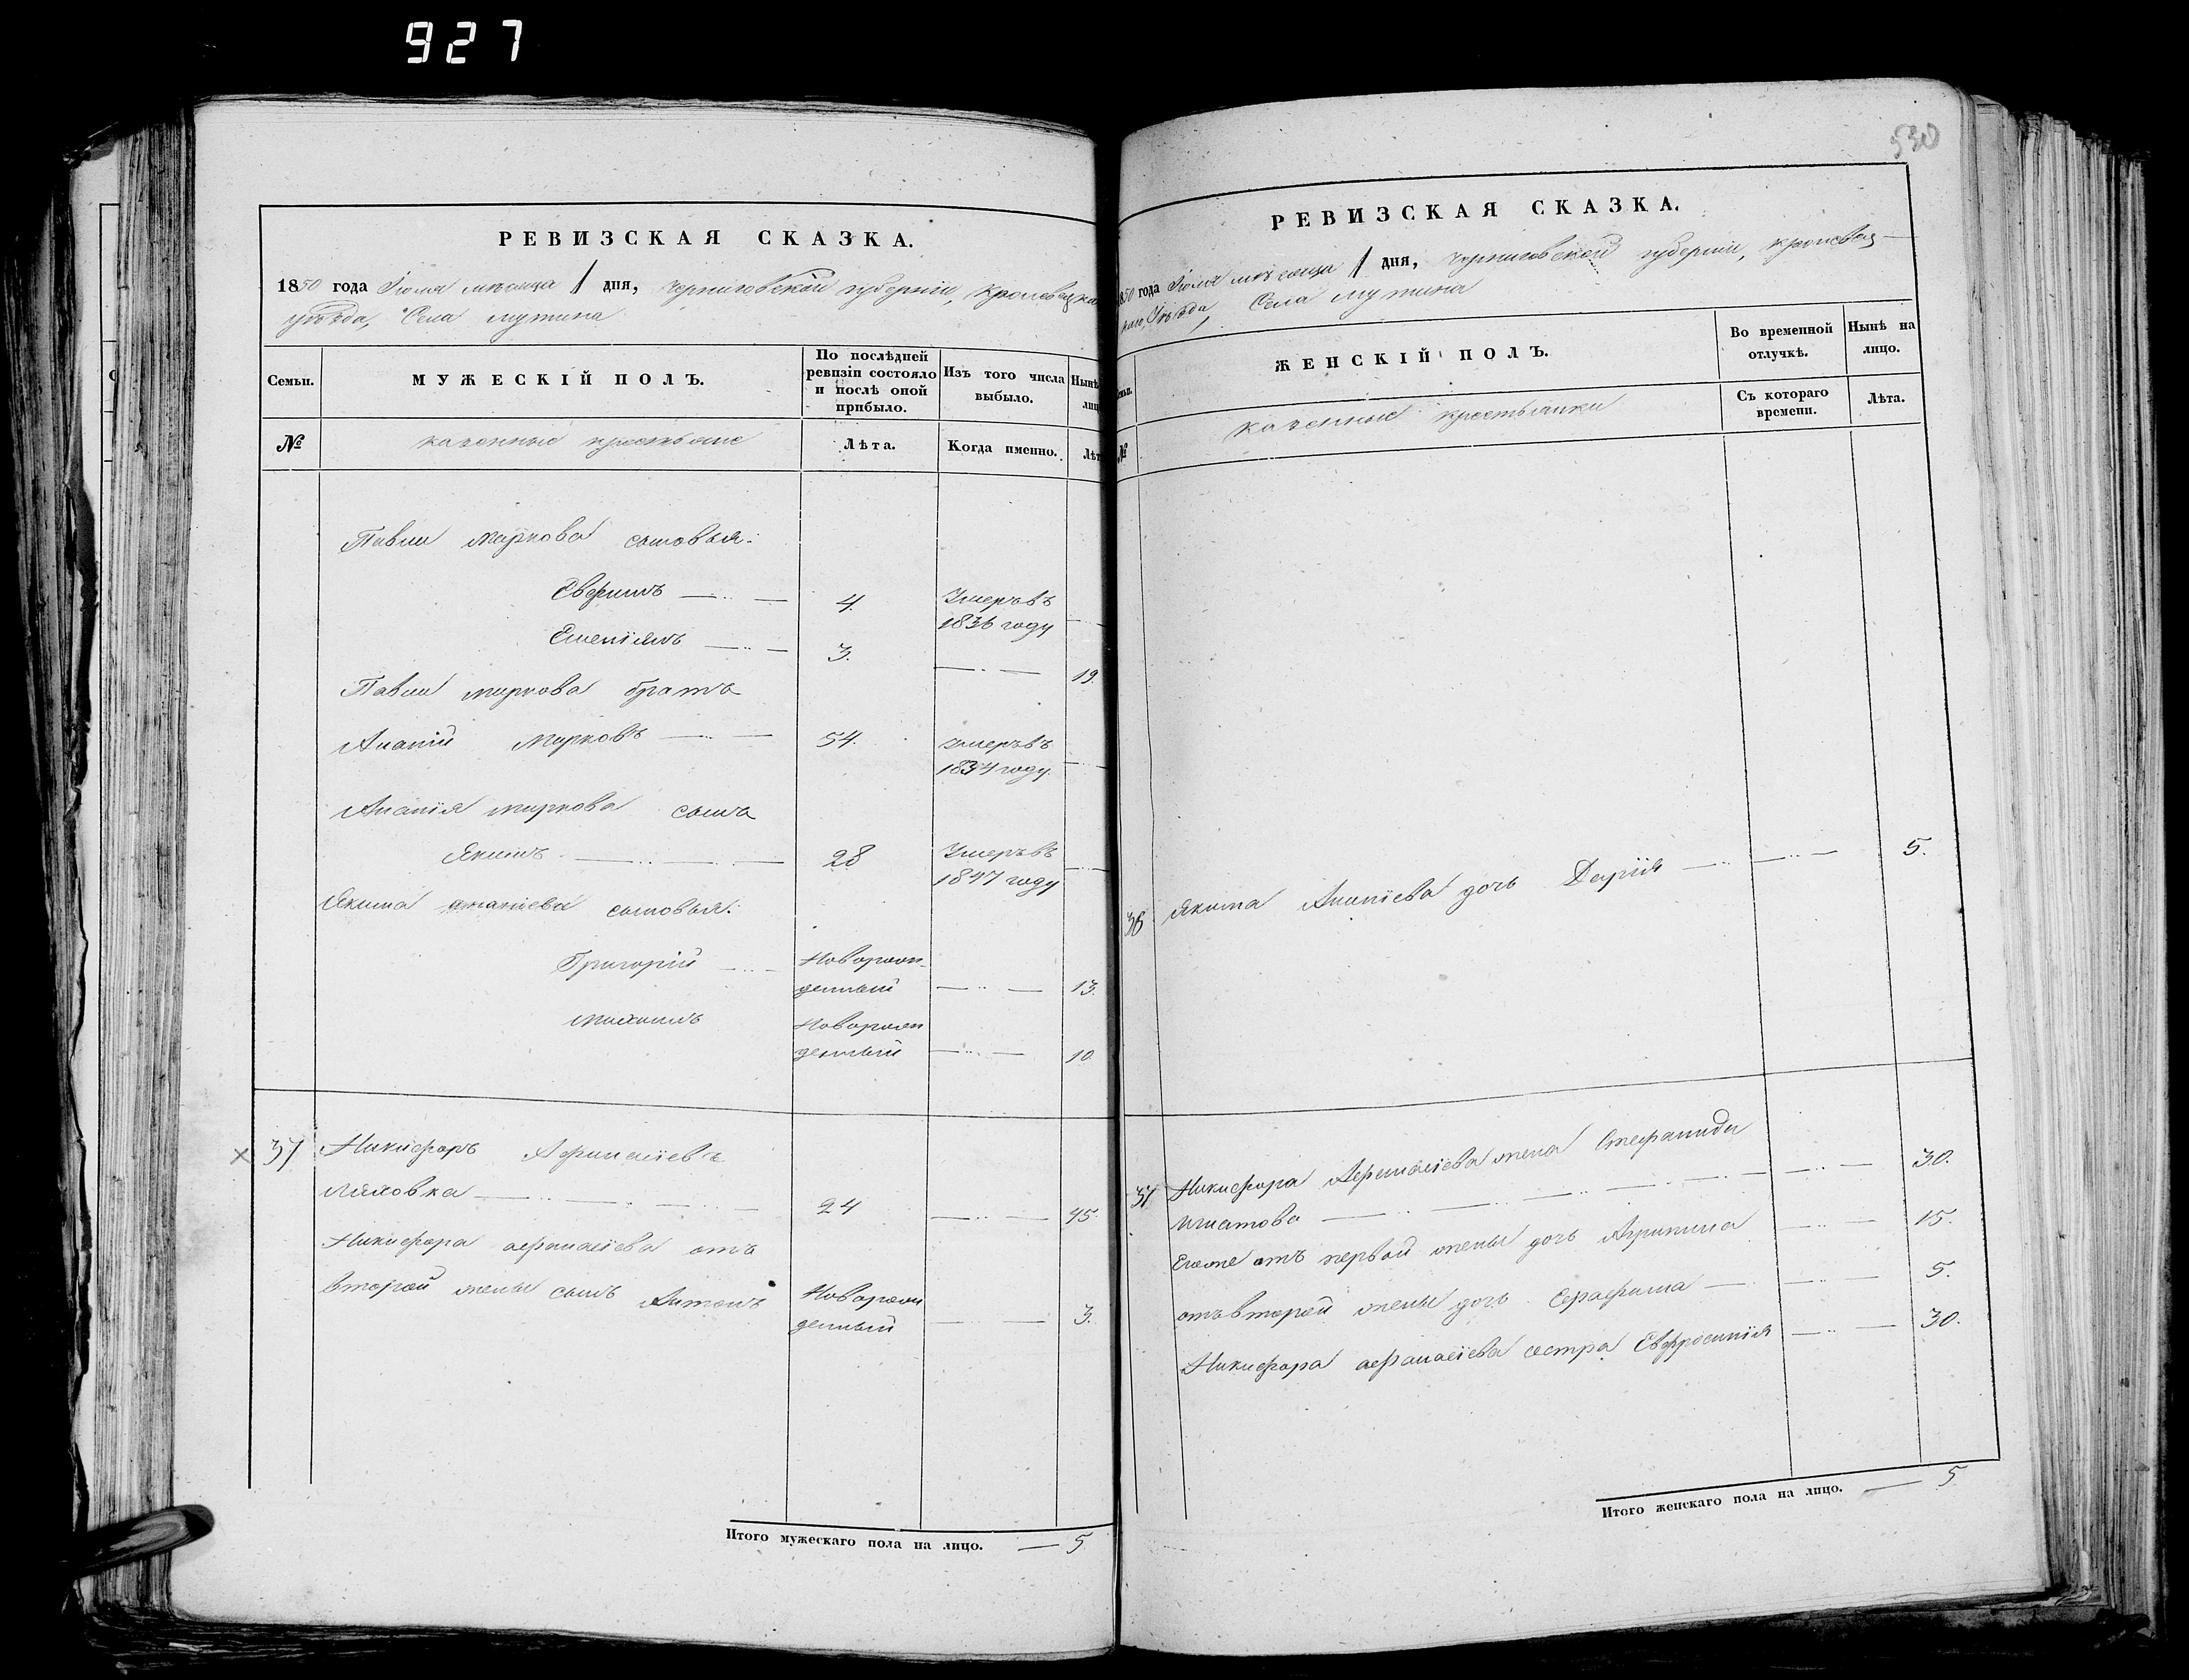 927
530
РЕВИЗСКАЯ СКАЗКА.
1850 года Іюля мѣсяца 1 дня, Черниговской губерніи, Кролевецка
уѣзда, Села Мутина
Семьи.
МУЖЕСКІЙ ПОЛЪ.
По послѣдней
ревизіи состояло
и послѣ оной
прибыло.
Изъ того числа
выбыло.
Нынѣ
лиц
№
казенные крестьяне
Лѣта.
Когда именно.
Лѣт
Павла Маркова сыновья:
Евфимъ 4. Умеръ въ
1836 году
Емеліянъ 3. 19.
Павла Маркова братъ
Ананій Марковъ 54. умеръ въ
1834 году.
Ананія Маркова сынъ
Якимъ 28 Умеръ въ
1847 году
Якима Ананіева сыновья:
Григорій Новорож-
денный 13.
Михаилъ Новорож
денный 10.
37 Никифоръ Афанасіевъ
Ляховка 24 45.
Никифора Афанасіева отъ
второй жены сынъ Антонъ Новорож
денный 3.
Итого мужескаго пола на лицо. 5
РЕВИЗСКАЯ СКАЗКА.
1850 года Іюля мѣсяца 1 дня, Черниговской губерніи, Кролевец-
каго Уѣзда, Села Мутина
ЖЕНСКІЙ ПОЛЪ.
Во временной
отлучкѣ.
Нынѣ на
лицо.
№
казенные крестьянки
Съ котораго
времени.
Лѣта.
36 Якима Ананіева дочь Дарія 5.
37 Никифора Афанасіева жена Стефанида
Игнатова 30.
Егоже отъ первой жены дочь Агрипина 15.
отъ второй жены дочь Серафима 5.
Никифора Афанасіева сестра Евфросинія 30.
Итого женскаго пола на лицо. 5